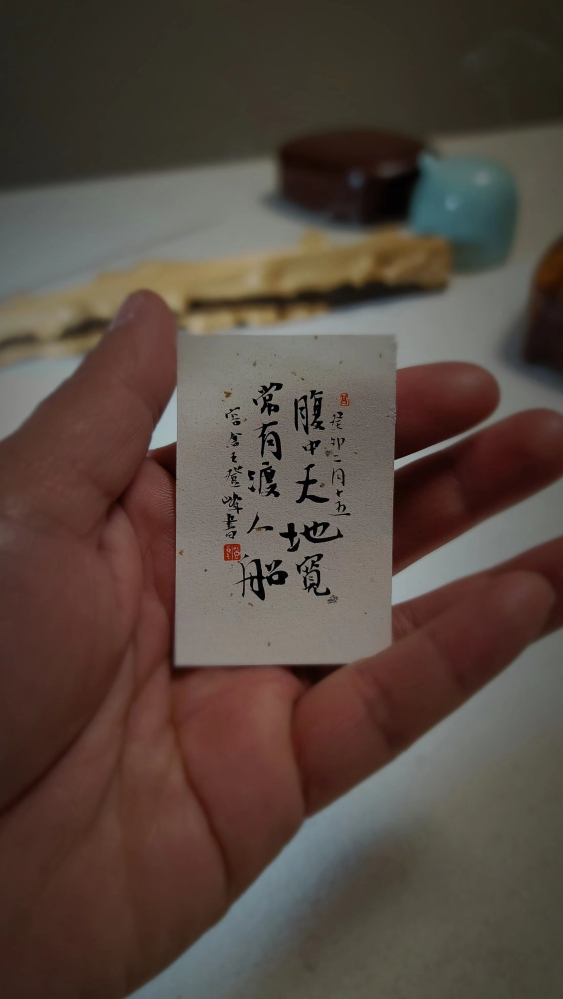 癸卯二月十五
腹中天地寬
常有渡人船
容舍王證峰書